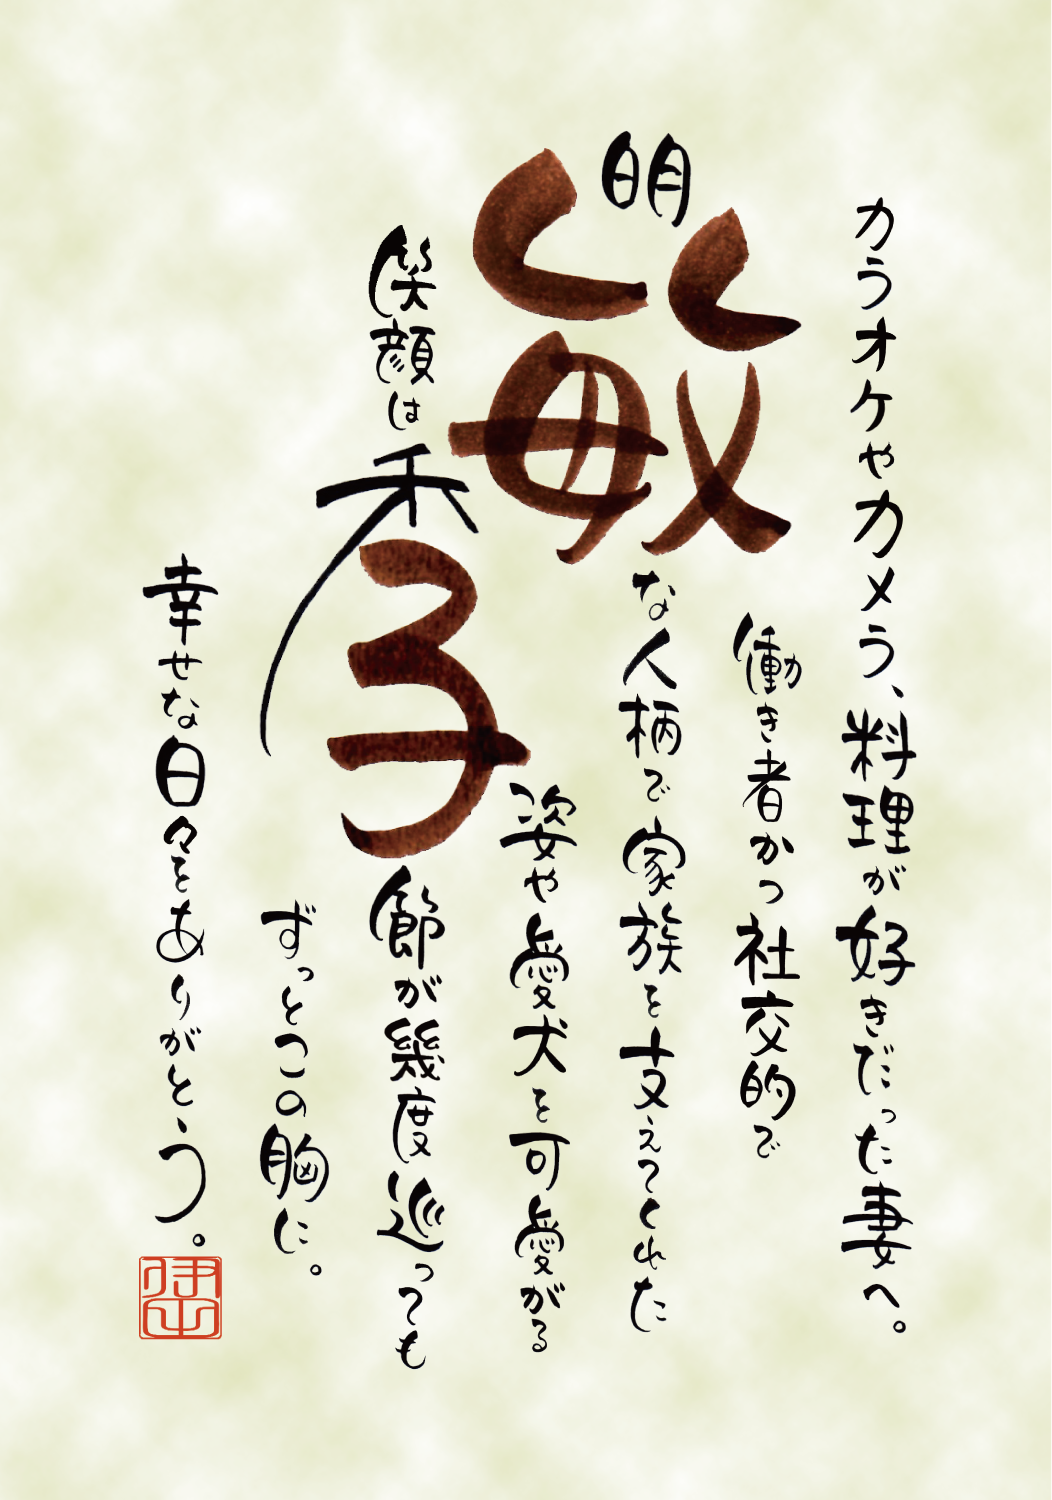 カラオケやカメラ、料理が好きだった妻へ。
働き者かつ社交的で
明敏な人柄で家族を支えてくれた
姿や愛犬を可愛がる
笑顔は季節が幾度巡っても
ずっとこの胸に。
幸せな日々をありがとう。